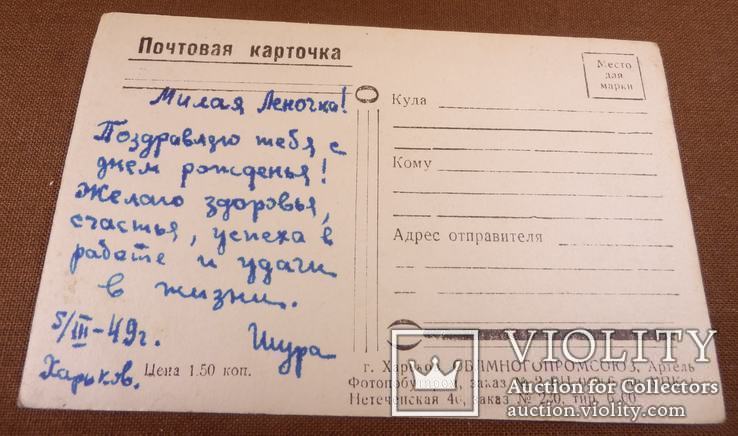 Почтовая карточка
Место
для
марки
Милая Леночка!
Поздравляю тебя с
днем рожденья!
Желаю здоровья,
счастья, успеха в
работе и удачи
в жизни.
5/III-49г. Шура
Харьков.
Куда
Кому
Адрес отправителя
Цена 1.50 коп.
г. ОБЛМНОГОПРОМСОЮЗ, Артель
заказ №
Нетеченская 40, заказ №
VIOLITY
Auction for Collectors
auction.violity.com